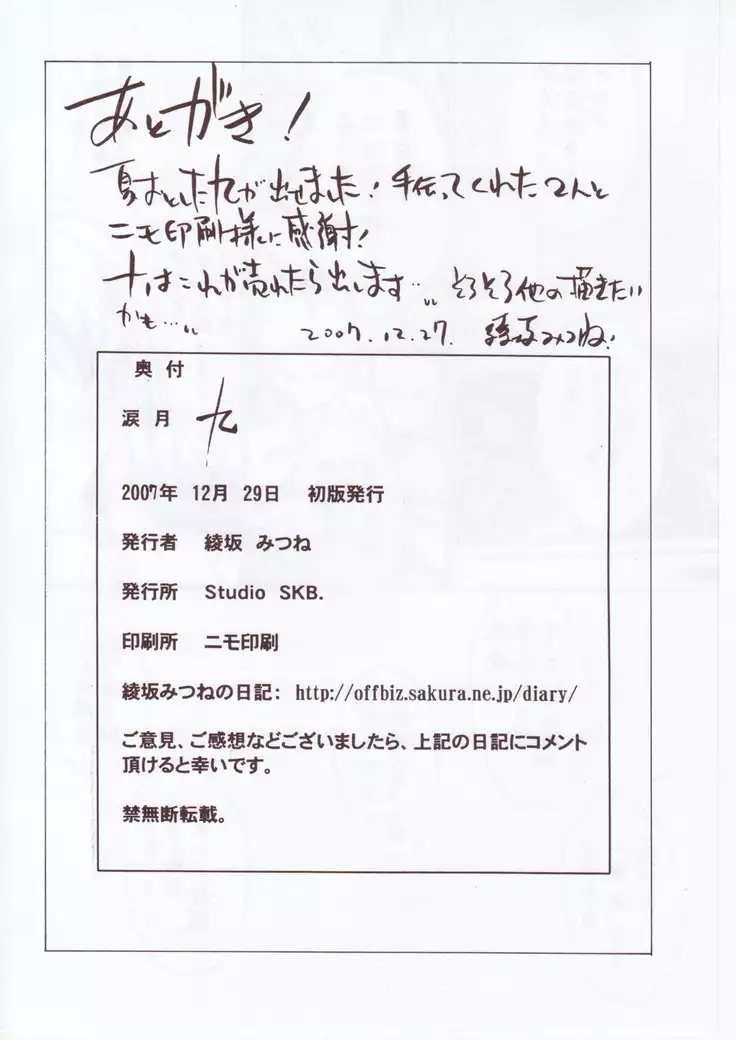 あとがき!
夏おとした九が出せました!手伝ってくれた2人と
ニモ印刷様に感謝!
十はこれが売れたら出します… そろそろ他の描きたい
かも…
2007.12.27. 綾坂みつね!
奥付
涙月 九
2007年 12月 29日 初版発行
発行者 綾坂 みつね
発行所 Studio SKB.
印刷所 ニモ印刷
綾坂みつねの日記: http://offbiz.sakura.ne.jp/diary/
ご意見、ご感想などございましたら、上記の日記にコメント
頂けると幸いです。
禁無断転載。